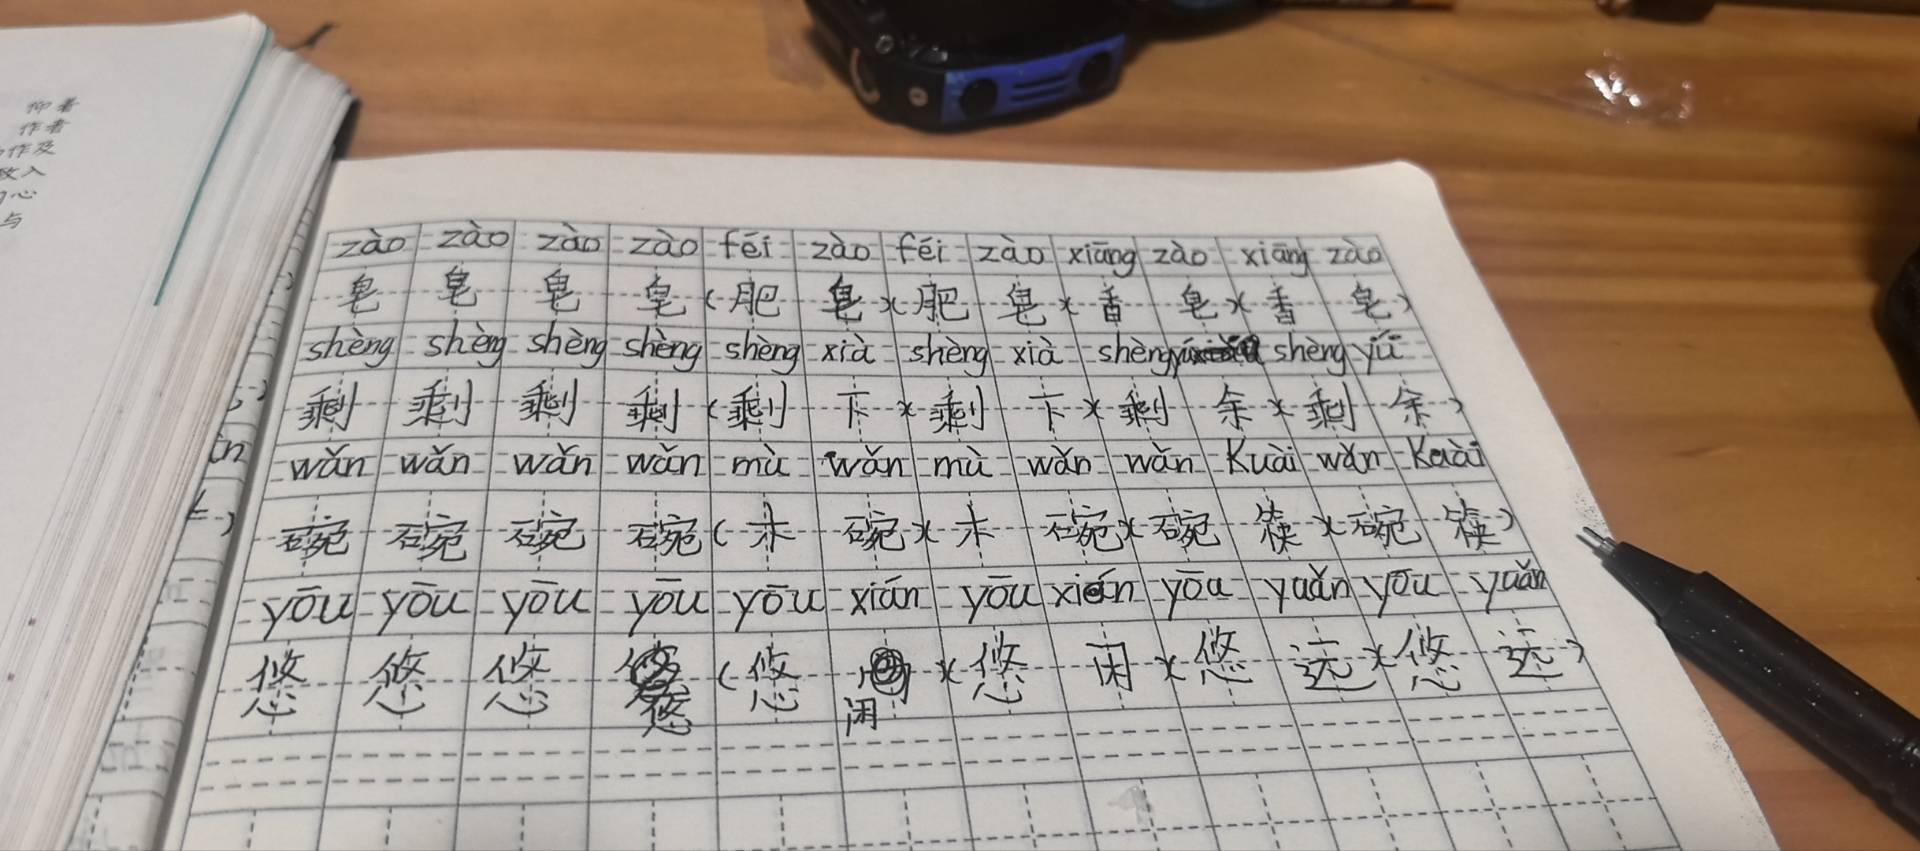 仰者
作者
作及
入
心
与
zào zào zào zào féi zào féi zào xiāng zào xiāng zào
皂 皂 皂 皂 (肥 皂)(肥 皂)(香 皂)(香 皂)
shèng shèng shèng shèng shèng xià shèng xià shèng shèng yú
剩 剩 剩 剩 (剩 下)(剩 下)(剩 余)(剩 余)
wǎn wǎn wǎn wǎn mù wǎn mù wǎn wǎn Kuài wǎn Kuài
碗 碗 碗 碗 (木 碗)(木 碗)(碗 筷)(碗 筷)
yōu yōu yōu yōu yōu xián yōu xián yōu yuǎn yōu yuǎn
悠 悠 悠 悠 (悠 闲)(悠 闲)(悠 远)(悠 远)